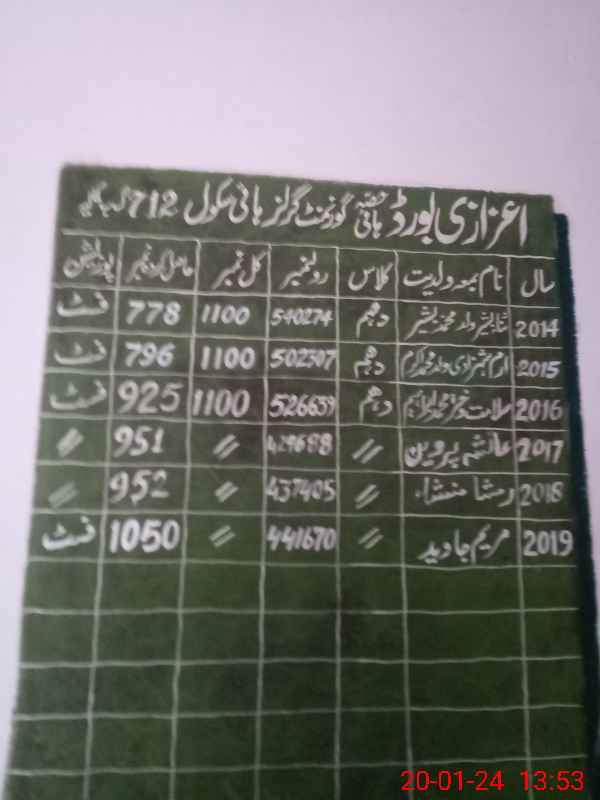 اعزازی بورڈ ہائی حصہ گورنمنٹ گرلز ہائی سکول 712 گ ب
سال نام بمعہ ولدیت کلاس رولنمبر کل نمبر حاصل کردہ نمبر پوزیشن
2014 ثنا بشیر ولد محمد بشیر دہم 540274 1100 778 فسٹ
2015 ارم شہزادی ولد محمد اکرم دہم 502307 1100 796 فسٹ
2016 سلامت دختر محمد ابراہیم دہم 526639 1100 925 فسٹ
2017 عائشہ پروین 〃 429688 〃 951 〃
2018 رمشا منشاء 〃 437405 〃 952 〃
2019 مریم جاوید 〃 441670 〃 1050 فسٹ
20-01-24 13:53